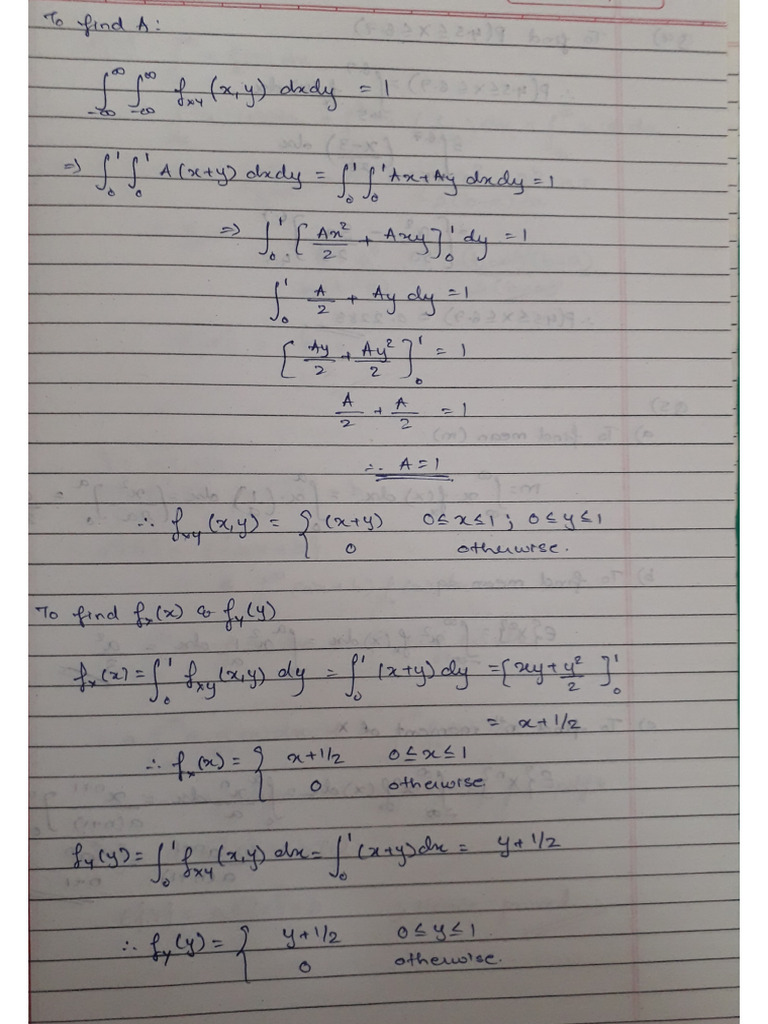 To find A:
∫_{-∞}^{∞} ∫_{-∞}^{∞} f_{xy}(x,y) dxdy = 1
⇒ ∫_0^1 ∫_0^1 A(x+y) dxdy = ∫_0^1 ∫_0^1 Ax+Ay dxdy = 1
⇒ ∫_0^1 [Ax²/2 + Axy]_0^1 dy = 1
∫_0^1 A/2 + Ay dy = 1
[Ay/2 + Ay²/2]_0^1 = 1
A/2 + A/2 = 1
∴ A = 1
∴ f_{xy}(x,y) = { (x+y) 0≤x≤1 ; 0≤y≤1
0 otherwise.
To find f_x(x) & f_y(y)
f_x(x) = ∫_0^1 f_{xy}(x,y) dy = ∫_0^1 (x+y)dy = [xy + y²/2]_0^1
= x+1/2
∴ f_x(x) = { x+1/2 0≤x≤1
0 otherwise.
f_y(y) = ∫_0^1 f_{xy}(x,y) dx = ∫_0^1 (x+y)dx = y+1/2
∴ f_y(y) = { y+1/2 0≤y≤1
0 otherwise.